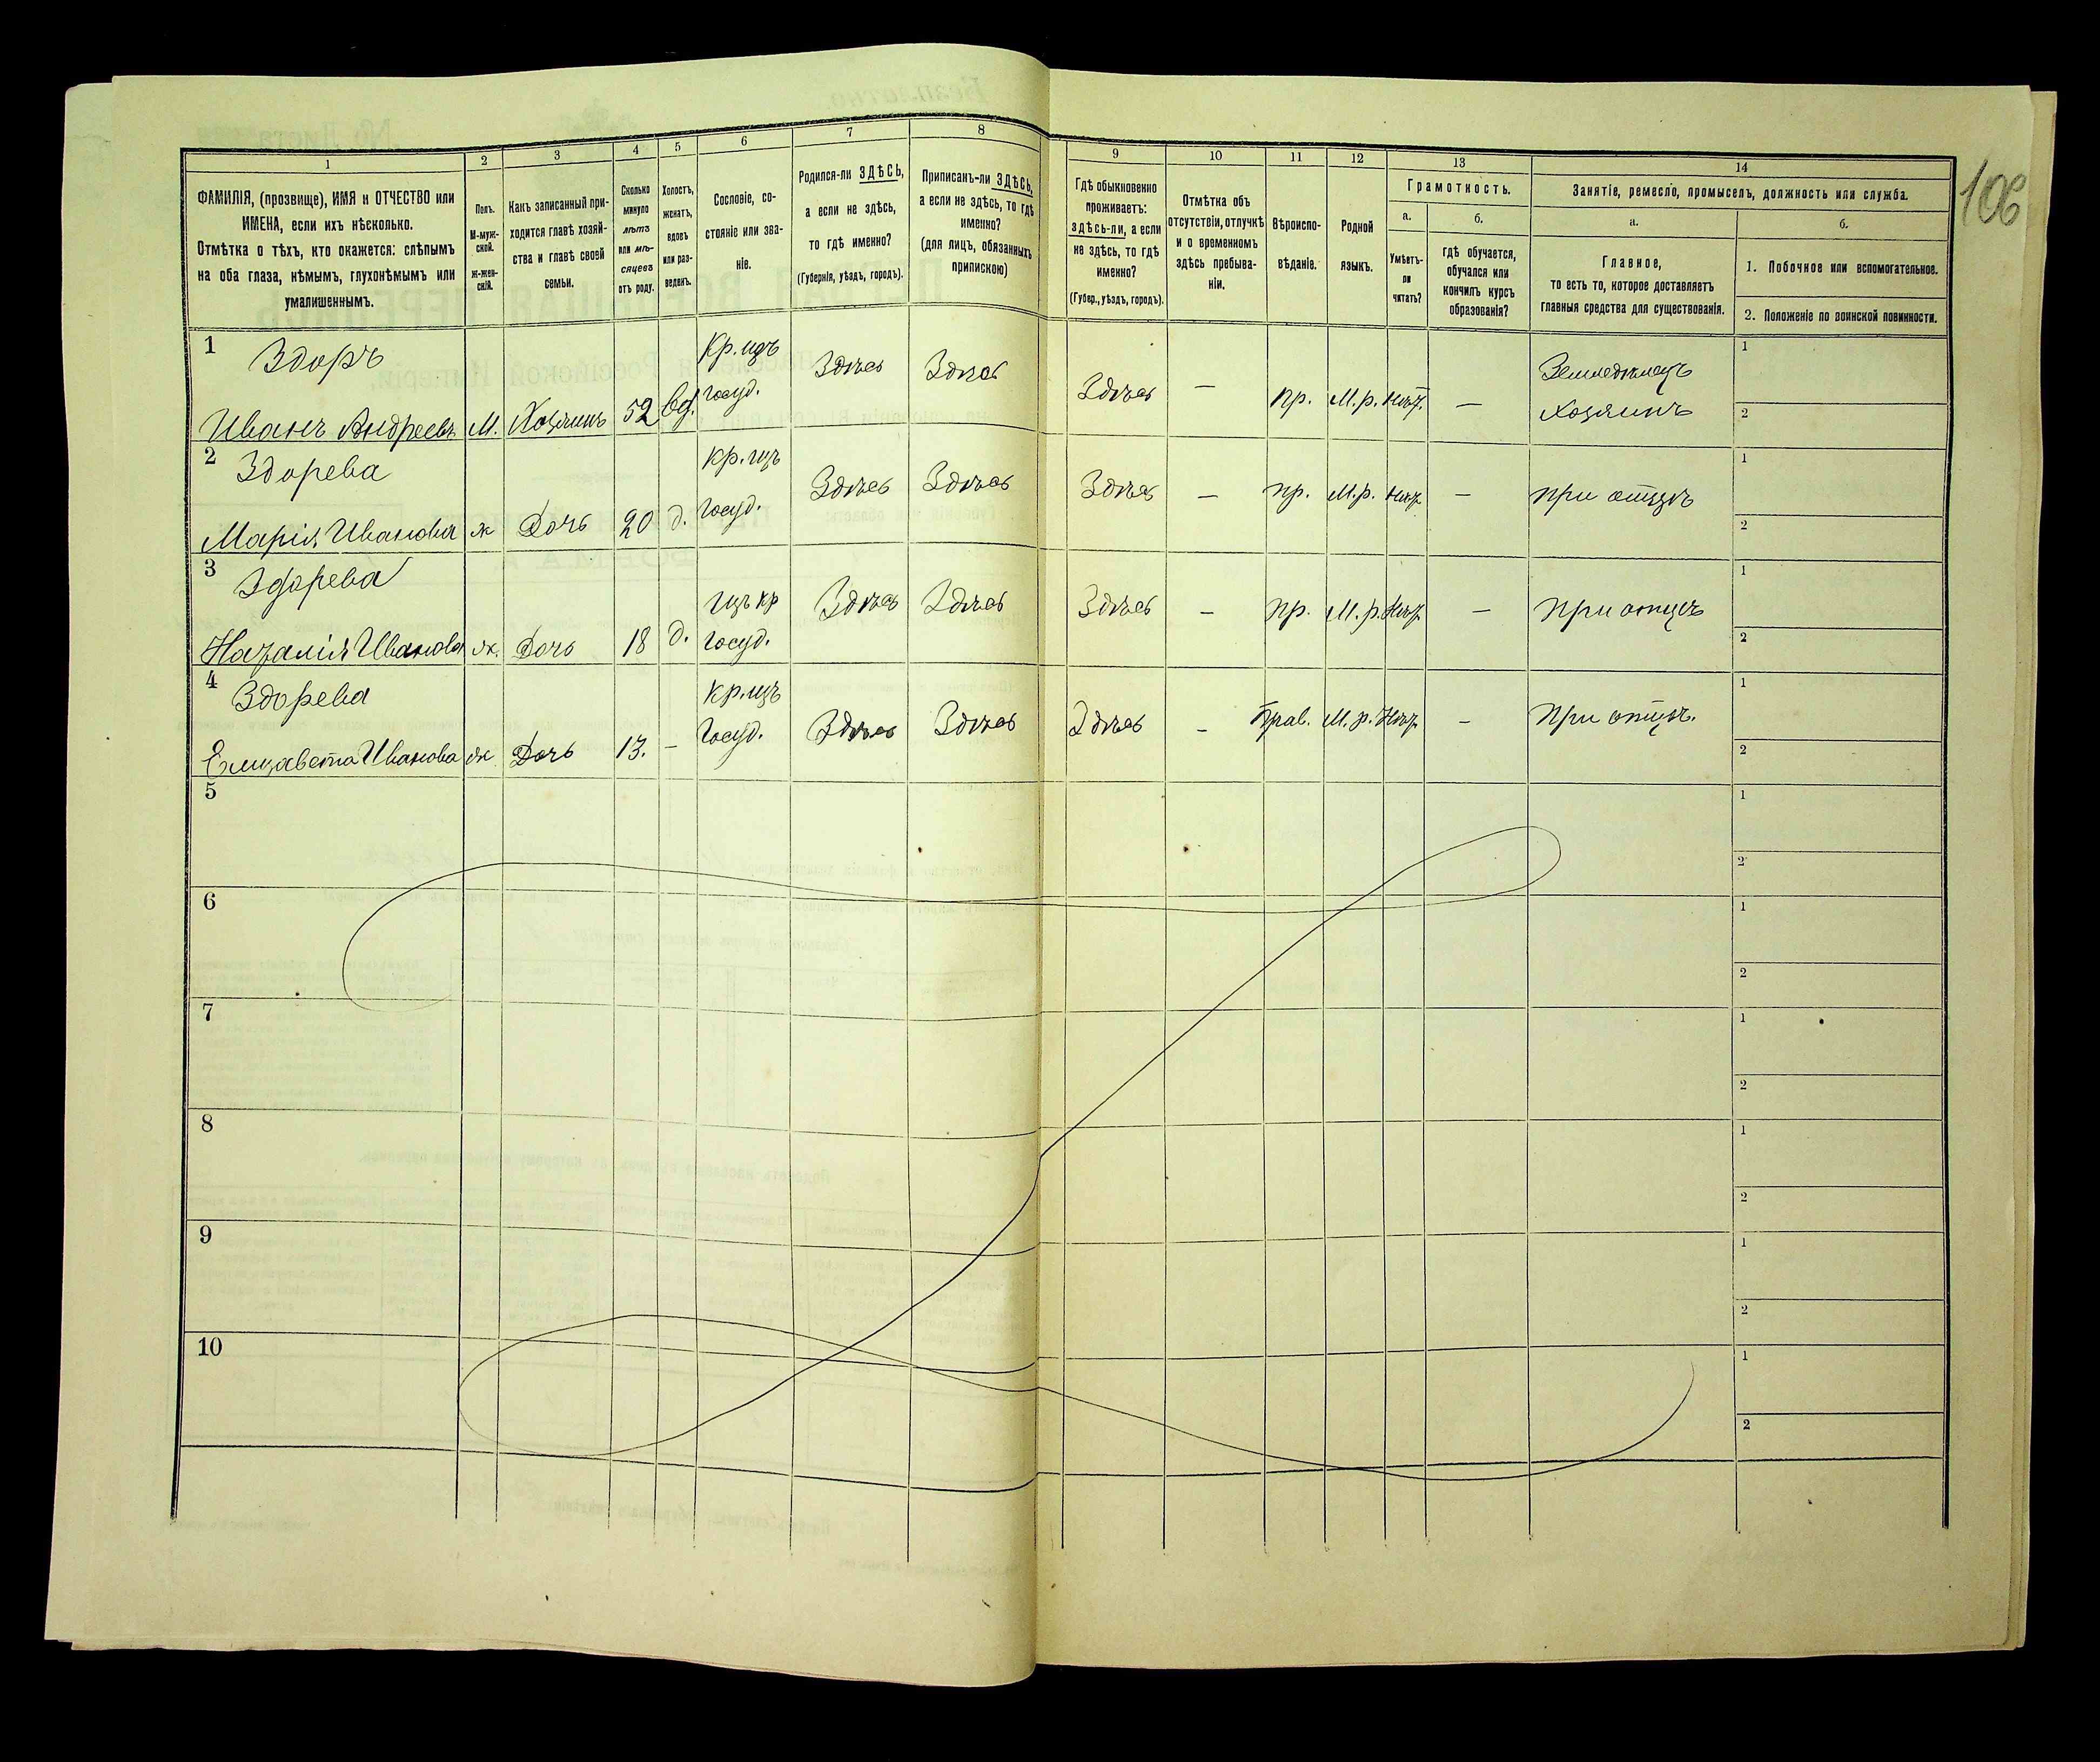 106
1 2 3 4 5 6 7 8 9 10 11 12 13 14
ФАМИЛІЯ, (прозвище), ИМЯ и ОТЧЕСТВО или
ИМЕНА, если ихъ нѣсколько.
Отмѣтка о тѣхъ, кто окажется: слѣпымъ
на оба глаза, нѣмымъ, глухонѣмымъ или
умалишеннымъ.
Полъ.
М-муж-
ской.
Ж-жен-
скій.
Какъ записанный при-
ходится главѣ хозяй-
ства и главѣ своей
семьи.
Сколько
минуло
лѣтъ
или мѣ-
сяцевъ
отъ роду.
Холостъ,
женатъ,
вдовъ
или раз-
веденъ.
Сословіе, со-
стояніе или зва-
ніе.
Родился-ли ЗДѢСЬ,
а если не здѣсь,
то гдѣ именно?
(Губернія, уѣздъ, городъ).
Приписанъ-ли ЗДѢСЬ,
а если не здѣсь, то гдѣ
именно?
(для лицъ, обязанныхъ
припискою)
Гдѣ обыкновенно
проживаетъ:
здѣсь-ли, а если
не здѣсь, то гдѣ
именно?
(Губер., уѣздъ, городъ).
Отмѣтка объ
отсутствіи, отлучкѣ
и о временномъ
здѣсь пребыва-
ніи.
Вѣроиспо-
вѣданіе.
Родной
языкъ.
Грамотность.
а.
Умѣетъ-
ли
читать?
б.
гдѣ обучается,
обучался или
кончилъ курсъ
образованія?
Занятіе, ремесло, промыселъ, должность или служба.
а.
Главное,
то есть то, которое доставляетъ
главныя средства для существованія.
б.
1. Побочное или вспомогательное.
2. Положеніе по воинской повинности.
1 Здоръ Кр. изъ Здѣсь Здѣсь Здѣсь — пр. М.р. нѣт. — Земледѣлецъ 1
Иванъ Андреевъ М. Хозяинъ 52 вд. госуд. Хозяинъ 2
2 Здорева Кр. изъ Здѣсь Здѣсь Здѣсь — пр. М.р. нѣт — при отцѣ 1
Марія Иванова ж Дочь 20 д. госуд. 2
3 Здорева изъ кр Здѣсь Здѣсь Здѣсь — пр. М.р. нѣт — при отцѣ 1
Наталія Иванова ж. Дочь 18 д. госуд. 2
4 Здорева Кр. изъ Здѣсь Здѣсь Здѣсь — Прав. М.р. Нѣт — При отцѣ. 1
Елизавета Иванова ж Дочь 13. — Госуд. 2
5 1
2
6 1
2
7 1
2
8 1
2
9 1
2
10 1
2